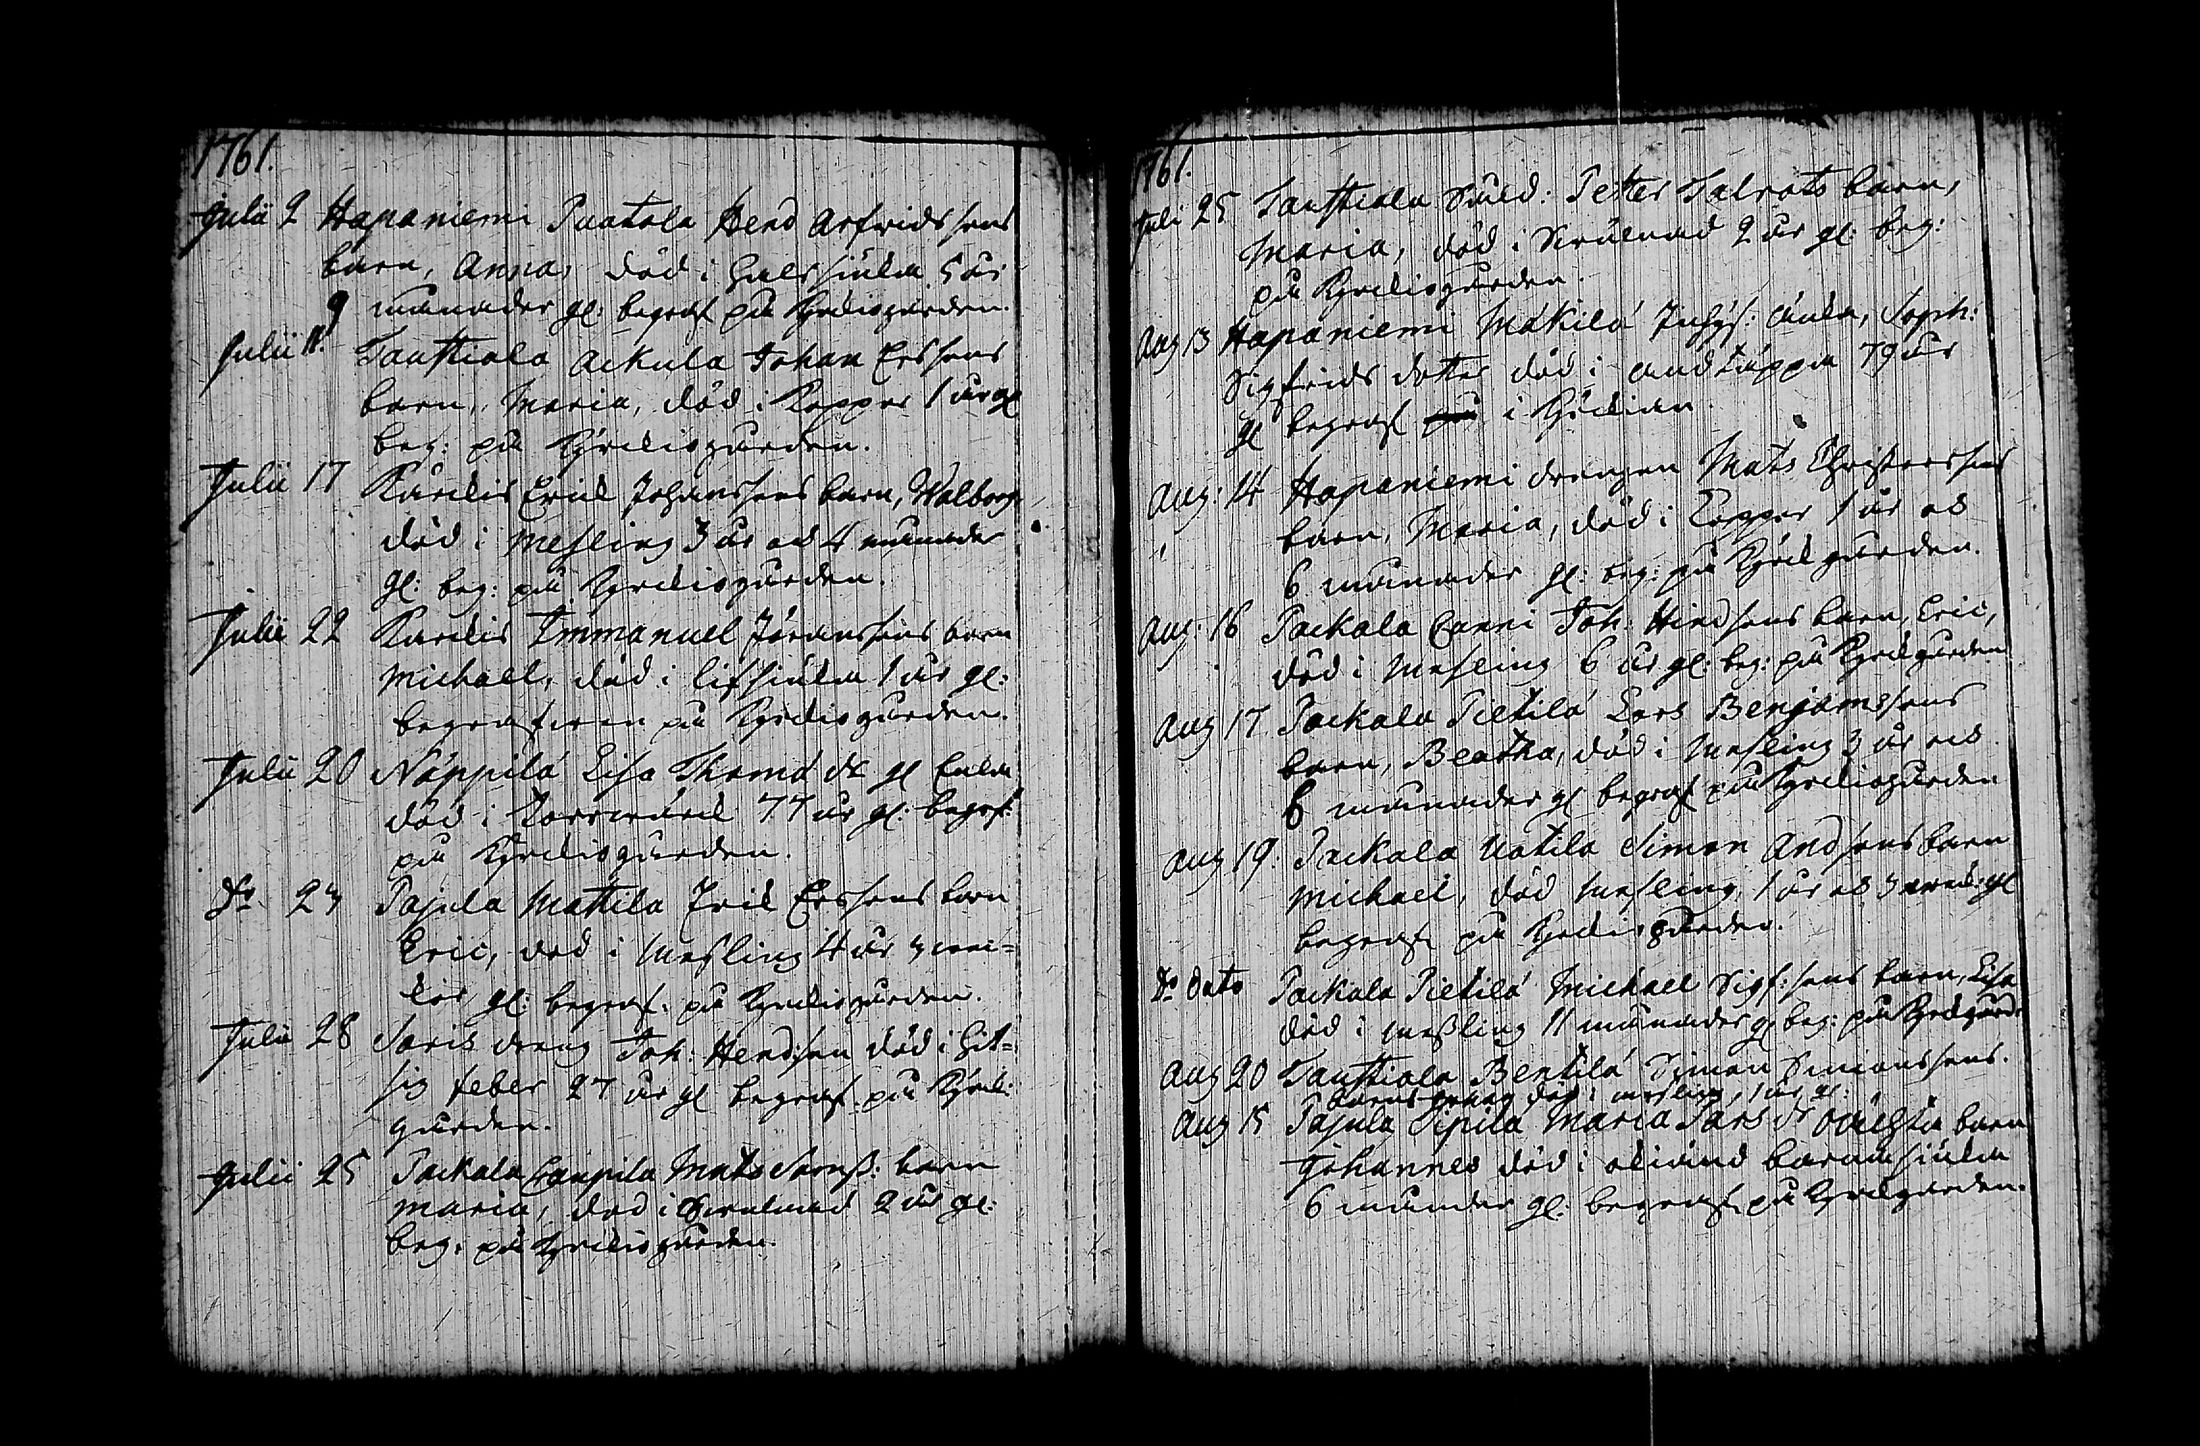 1761.
Julii 2 Hapaniemi Paatola Hend Arfwidssons
barn, Anna, död i halssiuka 5 åhr
9 månader gl: begraf på Kyrkiogården.
Julii 11. Tausttiala Ackula Johan Erssons
barn, Maria, död i koppor 1 åhr gl
beg: på Kyrkiogården.
Julii 17 Kärkis Erich Johanssons barn, Walborg,
död i Mesling 3 åhr och 4 månader
gl: beg: på Kyrkiogården.
Julii 22 Kärkis Immanuel Jöranssons barn
Michael, död i 1 åhr gl:
begrafwen på Kyrkiogården.
Julii 20 Näppilä Lisa Thoma dr gl Enka
död i 77 åhr gl: begraf:
på Kyrkiogården.
Do 23 Pajula Mattila Erik Erssons barn
Eric, död i Mesling 4 åhr 3 wec=
kor gl: begraf. på Kyrkiogården.
Julii 28 Saris dreng Joh: Hend:son död i hit=
sig feber 27 åhr gl begraf. på Kyrk:
gården.
Julii 25 Packala Caupila Mats barn
Maria, död i 2 åhr gl:
beg: på Kyrkiogården.
1761.
Juli 25 Tausttiala Petter barn,
Maria, död i 2 åhr gl: beg:
på Kyrkiogården.
Aug 13 Hapaniemi Mäkilä Inhys: änka, Soph:
Sigfrids dotter död i andtäppa 79 åhr
gl begraf på i Kyrkian
Aug: 14 Hapaniemi drengen Mats Christerssons
barn, Maria, död i Koppor 1 åhr och
6 månader gl: beg: på Kyrkgården.
Aug: 16 Packala Canni Joh: Hindssons barn, Eric,
död i Mesling 6 åhr gl: beg: på Kyrkgården
Aug 17. Packala Pietilä Lars Benjamssons
barn, Beatha, död i Mesling 3 åhr och
6 månader gl begraf på Kyrkiogården
Aug 19. Packala Uotila Simon Andssons barn
Michael, död Mesling 1 åhr och 3 gl
begraf på Kyrkiogården.
Do dato Packala Pietilä Michael Sigf:sons barn, Lisa
död i messling 11 månader gl beg: på Kyrkgård
Aug 20 Tausttiala Bentilä Simon Simonssons.
barns död i mesling, 1 åhr gl:
Aug 15 Pajula Sipilä Maria Lars dr oächta barn
Johannes död i okiänd barnasiuka
6 månader gl: begraf. på Kyrkgården.